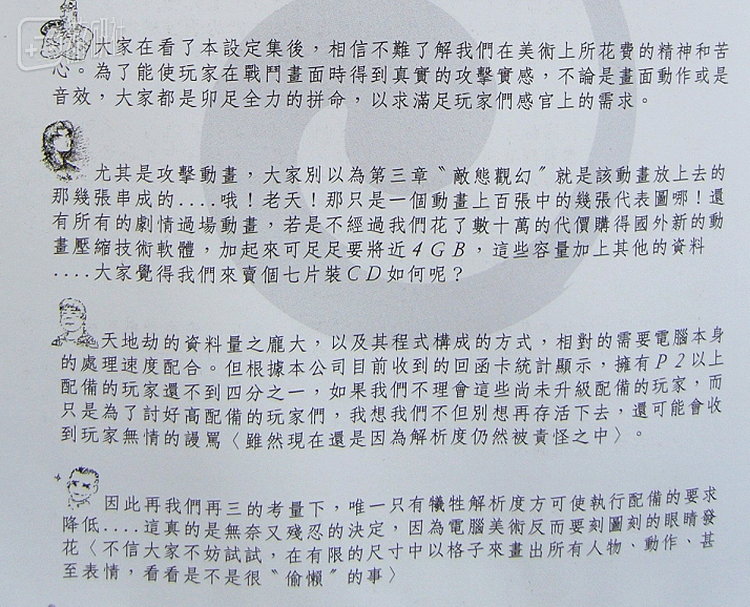 大家在看了本設定集後，相信不難了解我們在美術上所花費的精神和苦
心。為了能使玩家在戰鬥畫面時得到真實的攻擊實感，不論是畫面動作或是
音效，大家都是卯足全力的拼命，以求滿足玩家們感官上的需求。
尤其是攻擊動畫，大家別以為第三章〝敵態觀幻〞就是該動畫放上去的
那幾張串成的....哦！老天！那只是一個動畫上百張中的幾張代表圖哪！還
有所有的劇情過場動畫，若是不經過我們花了數十萬的代價購得國外新的動
畫壓縮技術軟體，加起來可足足要將近4GB，這些容量加上其他的資料
....大家覺得我們來賣個七片裝CD如何呢？
天地劫的資料量之龐大，以及其程式構成的方式，相對的需要電腦本身
的處理速度配合。但根據本公司目前收到的回函卡統計顯示，擁有P2以上
配備的玩家還不到四分之一，如果我們不理會這些尚未升級配備的玩家，而
只是為了討好高配備的玩家們，我想我們不但別想再存活下去，還可能會收
到玩家無情的謾罵〈雖然現在還是因為解析度仍然被責怪之中〉。
因此再我們再三的考量下，唯一只有犧牲解析度方可使執行配備的要求
降低....這真的是無奈又殘忍的決定，因為電腦美術反而要刻圖刻的眼睛發
花〈不信大家不妨試試，在有限的尺寸中以格子來畫出所有人物、動作、甚
至表情，看看是不是很〝偷懶〞的事〉